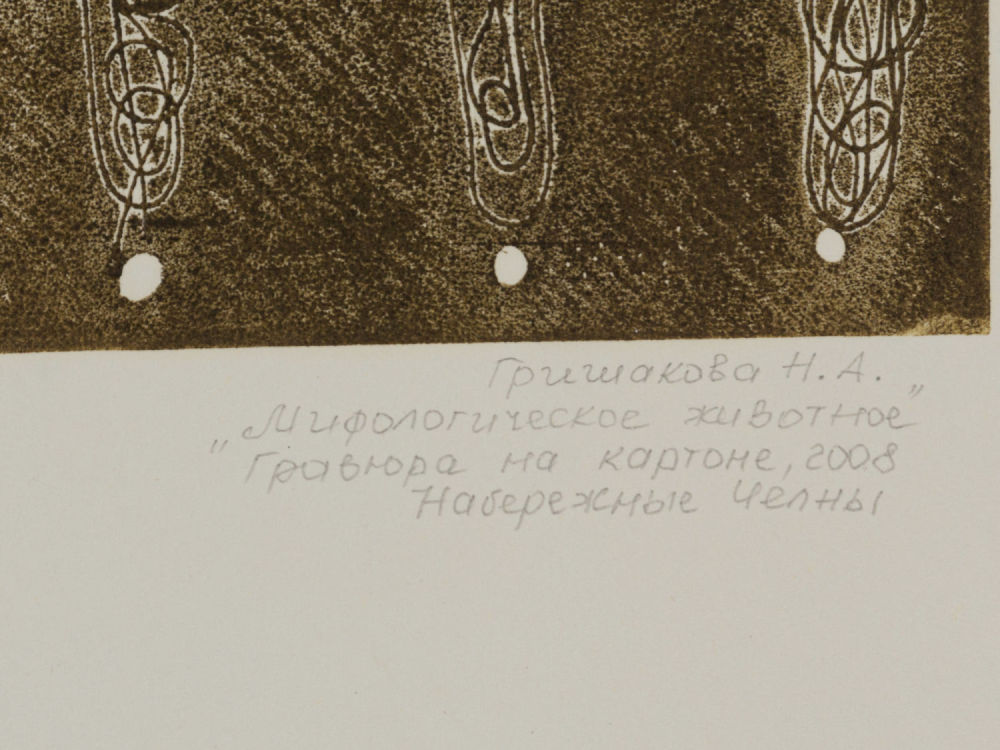 Гришакова Н. А.
„Мифологическое животное"
Гравюра на картоне, 2008
Набережные Челны